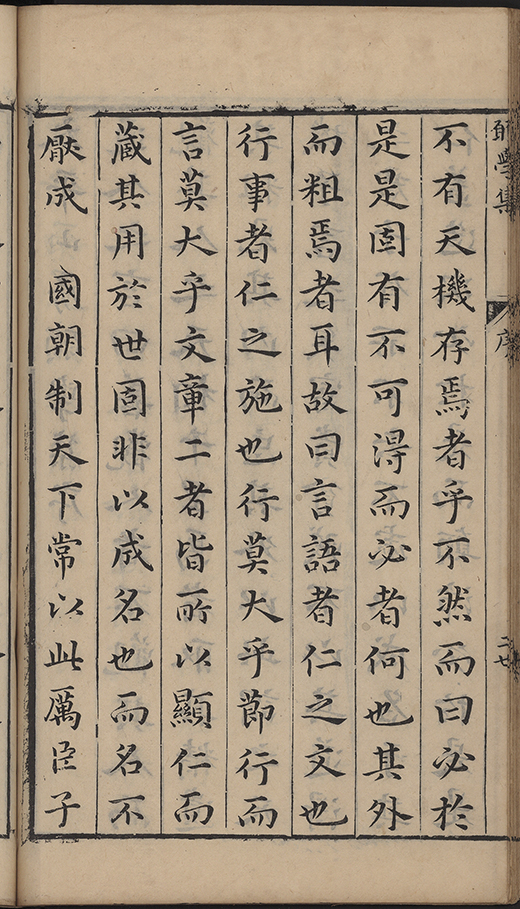 學集
序
二七
不有天機存焉者乎不然而曰必於
是是固有不可得而必者何也其外
而粗焉者耳故曰言語者仁之文也
行事者仁之施也行莫大乎節行而
言莫大乎文章二者皆所以顯仁而
藏其用於世固非以成名也而名不
厭成　國朝制天下常以此厲臣子